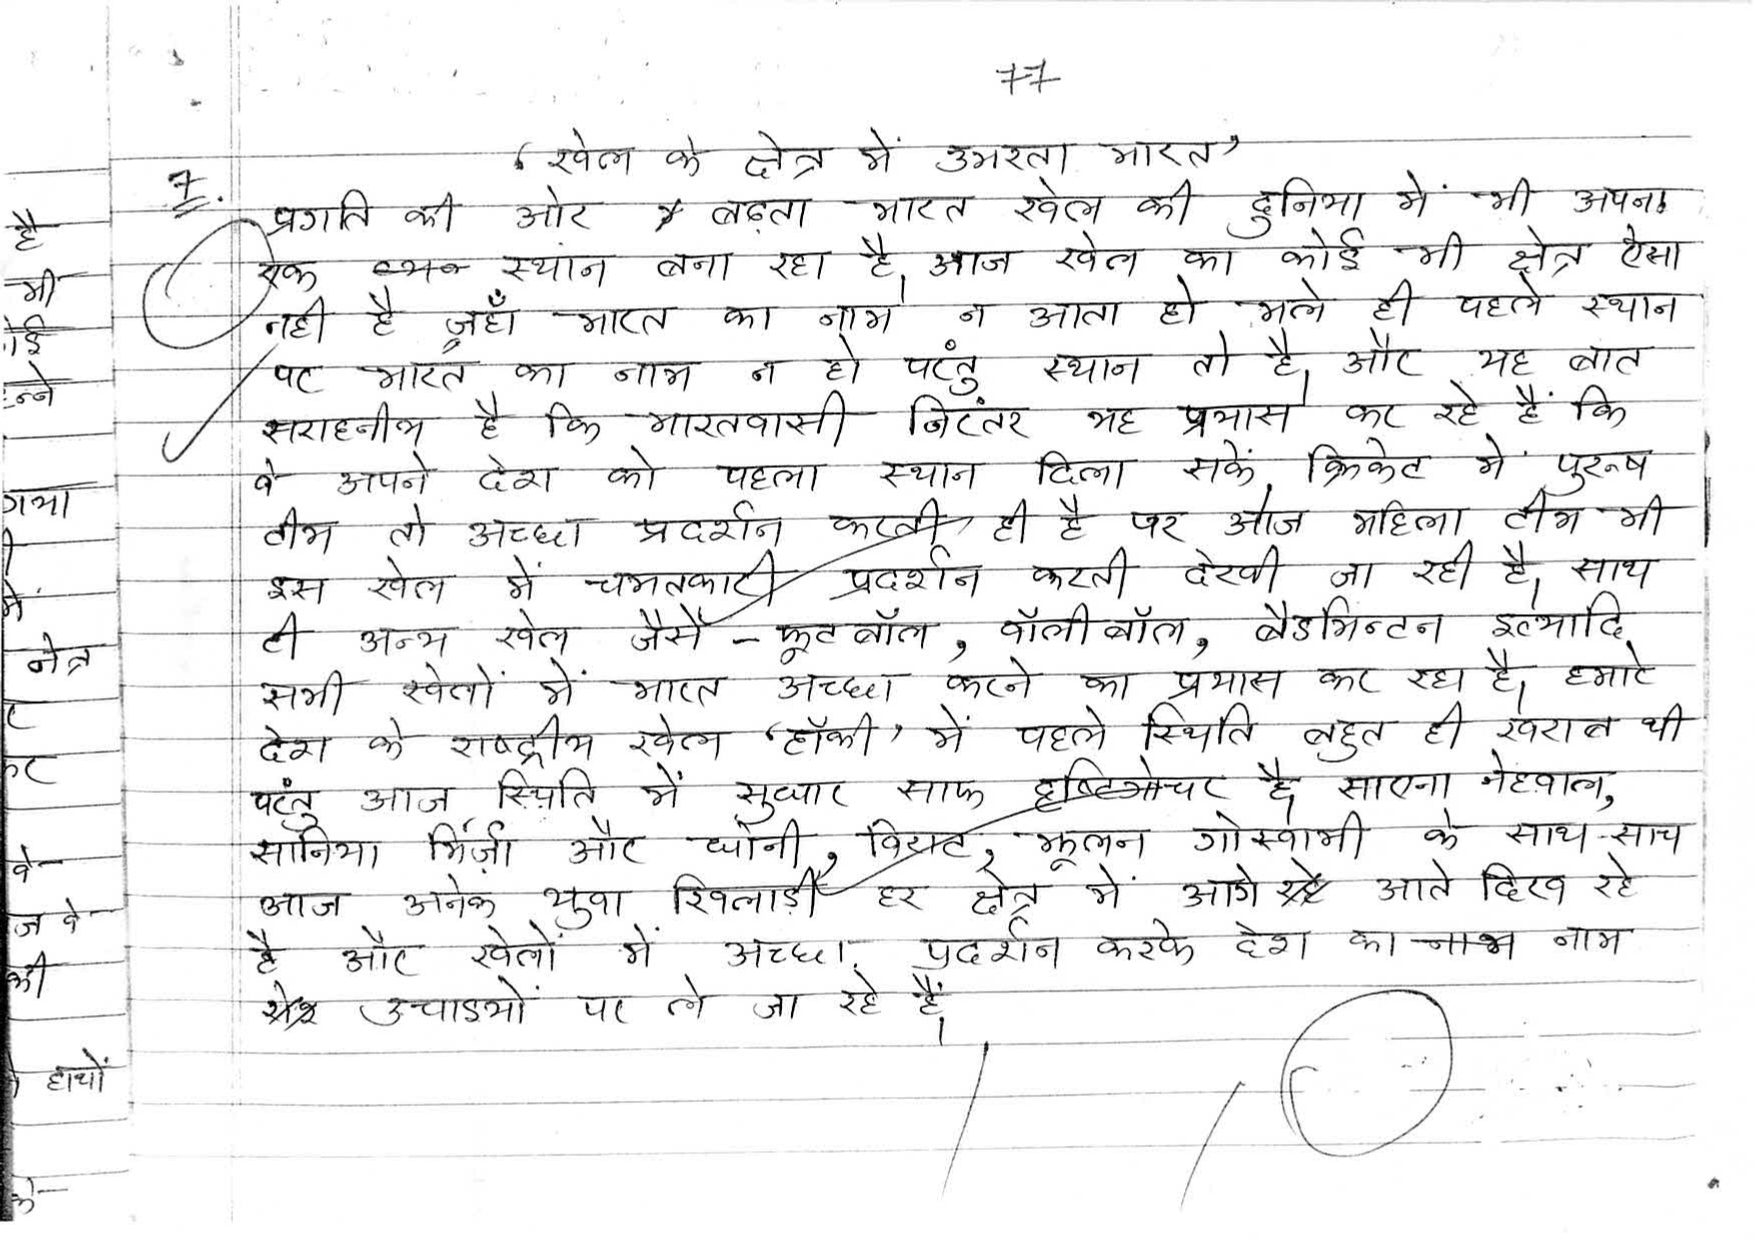 77
'खेल के क्षेत्र में उभरता भारत'
7. प्रगति की ओर बढ़ता भारत खेल की दुनिया में भी अपना
एक स्थान बना रहा है, आज खेल का कोई भी क्षेत्र ऐसा
नही है जहाँ भारत का नाम न आता हो भले ही पहले स्थान
पर भारत का नाम न हो परंतु स्थान तो है, और यह बात
सराहनीय है कि भारतवासी निरंतर यह प्रयास कर रहे हैं कि
वे अपने देश को पहला स्थान दिला सकें, क्रिकेट में पुरूष
टीम तो अच्छा प्रदर्शन करती ही है पर आज महिला टीम भी
इस खेल में चमतकारी प्रदर्शन करती देखी जा रही है, साथ
ही अन्य खेल जैसे - फूटबॉल, वॉलीबॉल, बैडमिन्टन इत्यादि
सभी खेलों में भारत अच्छा करने का प्रयास कर रहा है, हमारे
देश के राष्ट्रीय खेल 'हॉकी' में पहले स्थिति बहुत ही खराब थी
परंतु आज स्थिति में सुधार साफ दृष्टिगोचर है, साएना नेहवाल,
सानिया मिर्ज़ा और धोनी, विराट, झूलन गोस्वामी के साथ-साथ
आज अनेक युवा खिलाड़ी हर क्षेत्र में आगे आते दिख रहे
है और खेलों में अच्छा प्रदर्शन करके देश का नाम
उचाइयों पर ले जा रहे हैं,
है
भी
न्ने
गया
में
नेत्र
वे-
ज वे-
की
हाथों